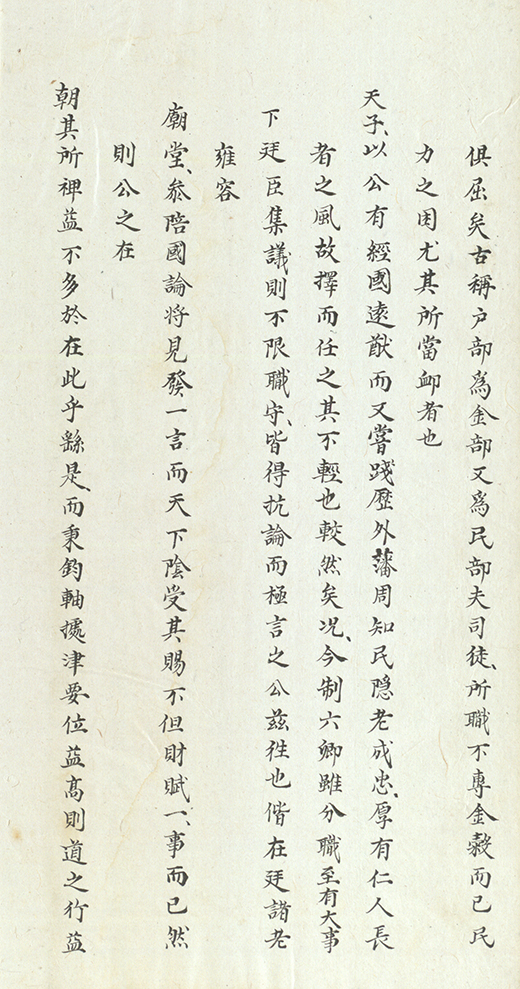 俱屈矣古稱户部爲金部又爲民部夫司徒所職不專金穀而已民
力之困尤其所當卹者也
天子以公有經國遠猷而又嘗踐歷外藩周知民隠老成忠厚有仁人長
者之風故擇而任之其不輕也較然矣况今制六卿雖分職至有大事
下廷臣集議則不限職守皆得抗論而極言之公兹徃也偕在廷諸老
雍容
廟堂叅陪國論将見發一言而天下陰受其賜不但財賦一事而已然
則公之在
朝其所裨益不多於在此乎繇是而秉鈞軸據津要位益髙則道之行益